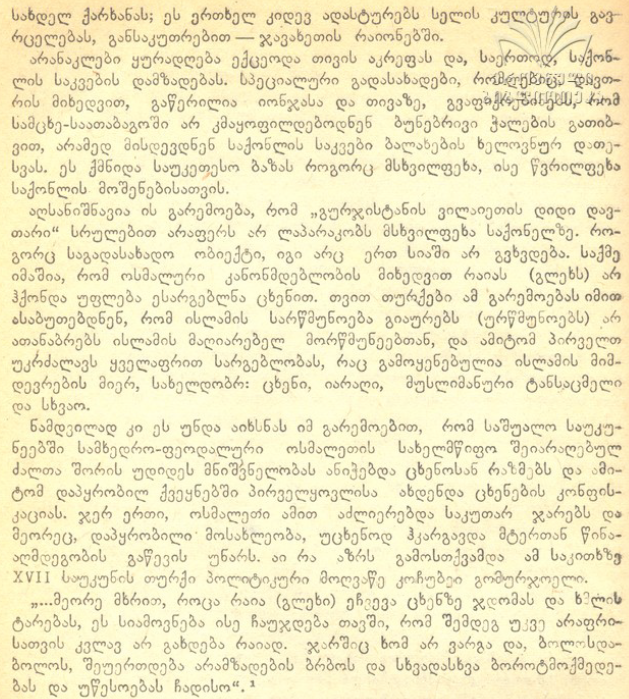 სახდელ ქარხანას; ეს ერთხელ კიდევ ადასტურებს სელის კულტურის გავ-
რცელებას, განსაკუთრებით — ჯავახეთის რაიონებში.
არანაკლები ყურადღება ექცეოდა თივის აკრეფას და, საერთოდ, საქონ-
ლის საკვების დამზადებას. სპეციალური გადასახადები, რომლებიც, დავთ-
რის მიხედვით, გაწერილია იონჯასა და თივაზე, გვაფიქრებინებს, რომ
სამცხე-საათაბაგოში არ კმაყოფილდებოდნენ ბუნებრივი ჭალების გათიბ-
ვით, არამედ მისდევდნენ საქონლის საკვები ბალახების ხელოვნურ დათე-
სვას. ეს ქმნიდა საუკეთესო ბაზას როგორც მსხვილფეხა, ისე წვრილფეხა
საქონლის მოშენებისათვის.
აღსანიშნავია ის გარემოება, რომ „გურჯისტანის ვილაიეთის დიდი დავ-
თარი“ სრულებით არაფერს არ ლაპარაკობს მსხვილფეხა საქონელზე. რო-
გორც საგადასახადო ობიექტი, იგი არც ერთ სიაში არ გვხვდება. საქმე
იმაშია, რომ ოსმალური კანონმდებლობის მიხედვით რაიას (გლეხს) არ
ჰქონდა უფლება ესარგებლნა ცხენით. თვით თურქები ამ გარემოებას იმით
ასაბუთებდნენ, რომ ისლამის სარწმუნოება გიაურებს (ურწმუნოებს) არ
ათანაბრებს ისლამის მაღიარებელ მორწმუნეებთან, და ამიტომ პირველთ
უკრძალავს ყველაფრით სარგებლობას, რაც გამოყენებულია ისლამის მიმ-
დევრების მიერ, სახელდობრ: ცხენი, იარაღი, მუსლიმანური ტანსაცმელი
და სხვაო.
ნამდვილად კი ეს უნდა აიხსნას იმ გარემოებით, რომ საშუალო საუკუ-
ნეებში სამხედრო-ფეოდალური ოსმალეთის სახელმწიფო შეიარაღებულ
ძალთა შორის უდიდეს მნიშვნელობას ანიჭებდა ცხენოსან რაზმებს და ამი-
ტომ დაპყრობილ ქვეყნებში პირველყოვლისა ახდენდა ცხენების კონფის-
კაციას. ჯერ ერთი, ოსმალეთი ამით აძლიერებდა საკუთარ ჯარებს და
მეორეც, დაპყრობილი მოსახლეობა, უცხენოდ ჰკარგავდა მტერთან წინა-
აღმდეგობის გაწევის უნარს. აი რა აზრს გამოსთქვამდა ამ საკითხზე
XVII საუკუნის თურქი პოლიტიკური მოღვაწე კოჩუბეი გომურჯოელი.
„...მეორე მხრით, როცა რაია (გლეხი) ეჩვევა ცხენზე ჯდომას და ხმლის
ტარებას, ეს სიამოვნება ისე ჩაუჯდება თავში, რომ შემდეგ უკვე არაფრი-
სათვის კვლავ არ გახდება რაიად. ჯარშიც ხომ არ ვარგა და, ბოლოსდა-
ბოლოს, შეუერთდება არამზადების ბრბოს და სხვადასხვა ბოროტმოქმედე-
ბას და უწესოებას ჩადისო“.¹